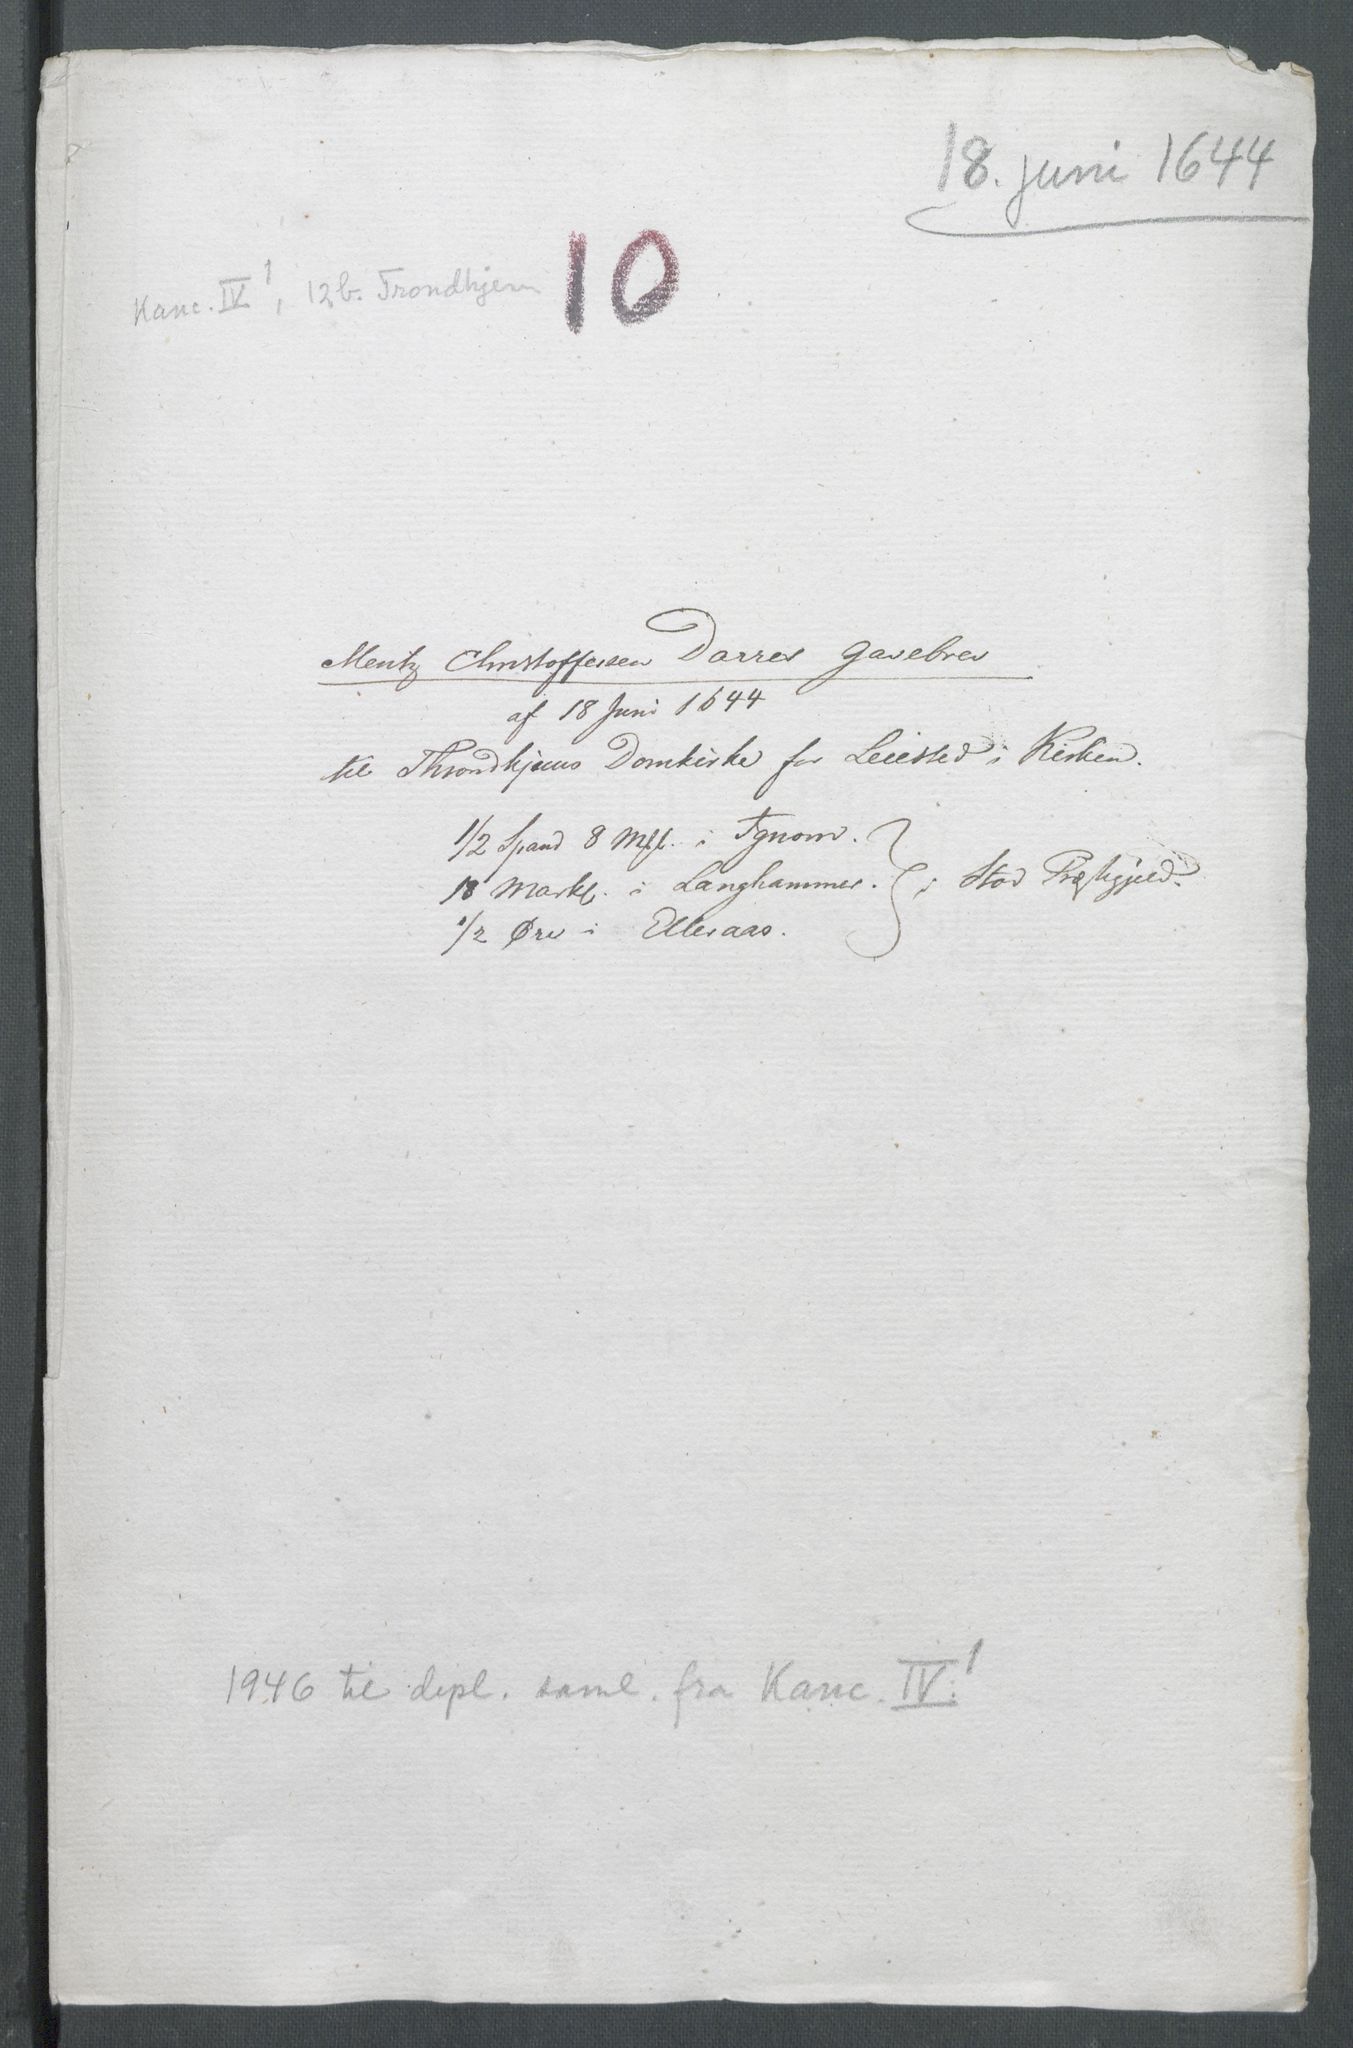 18. juni 1644
10
Kanc. IV¹, 12b. Trondhjem
Mentz Christoffersen Darres Gavebrev
af 18 Juni 1644
til Throndhjems Domkirke for Leiested i Kirken.
1/2 Spand 8 Mkl. i Tgnom.
18 Markl. i Langhammer. } i Stod Præstgjeld.
1/2 Øre i Elleraas.
1946 til dipl. saml. fra Kanc. IV.¹